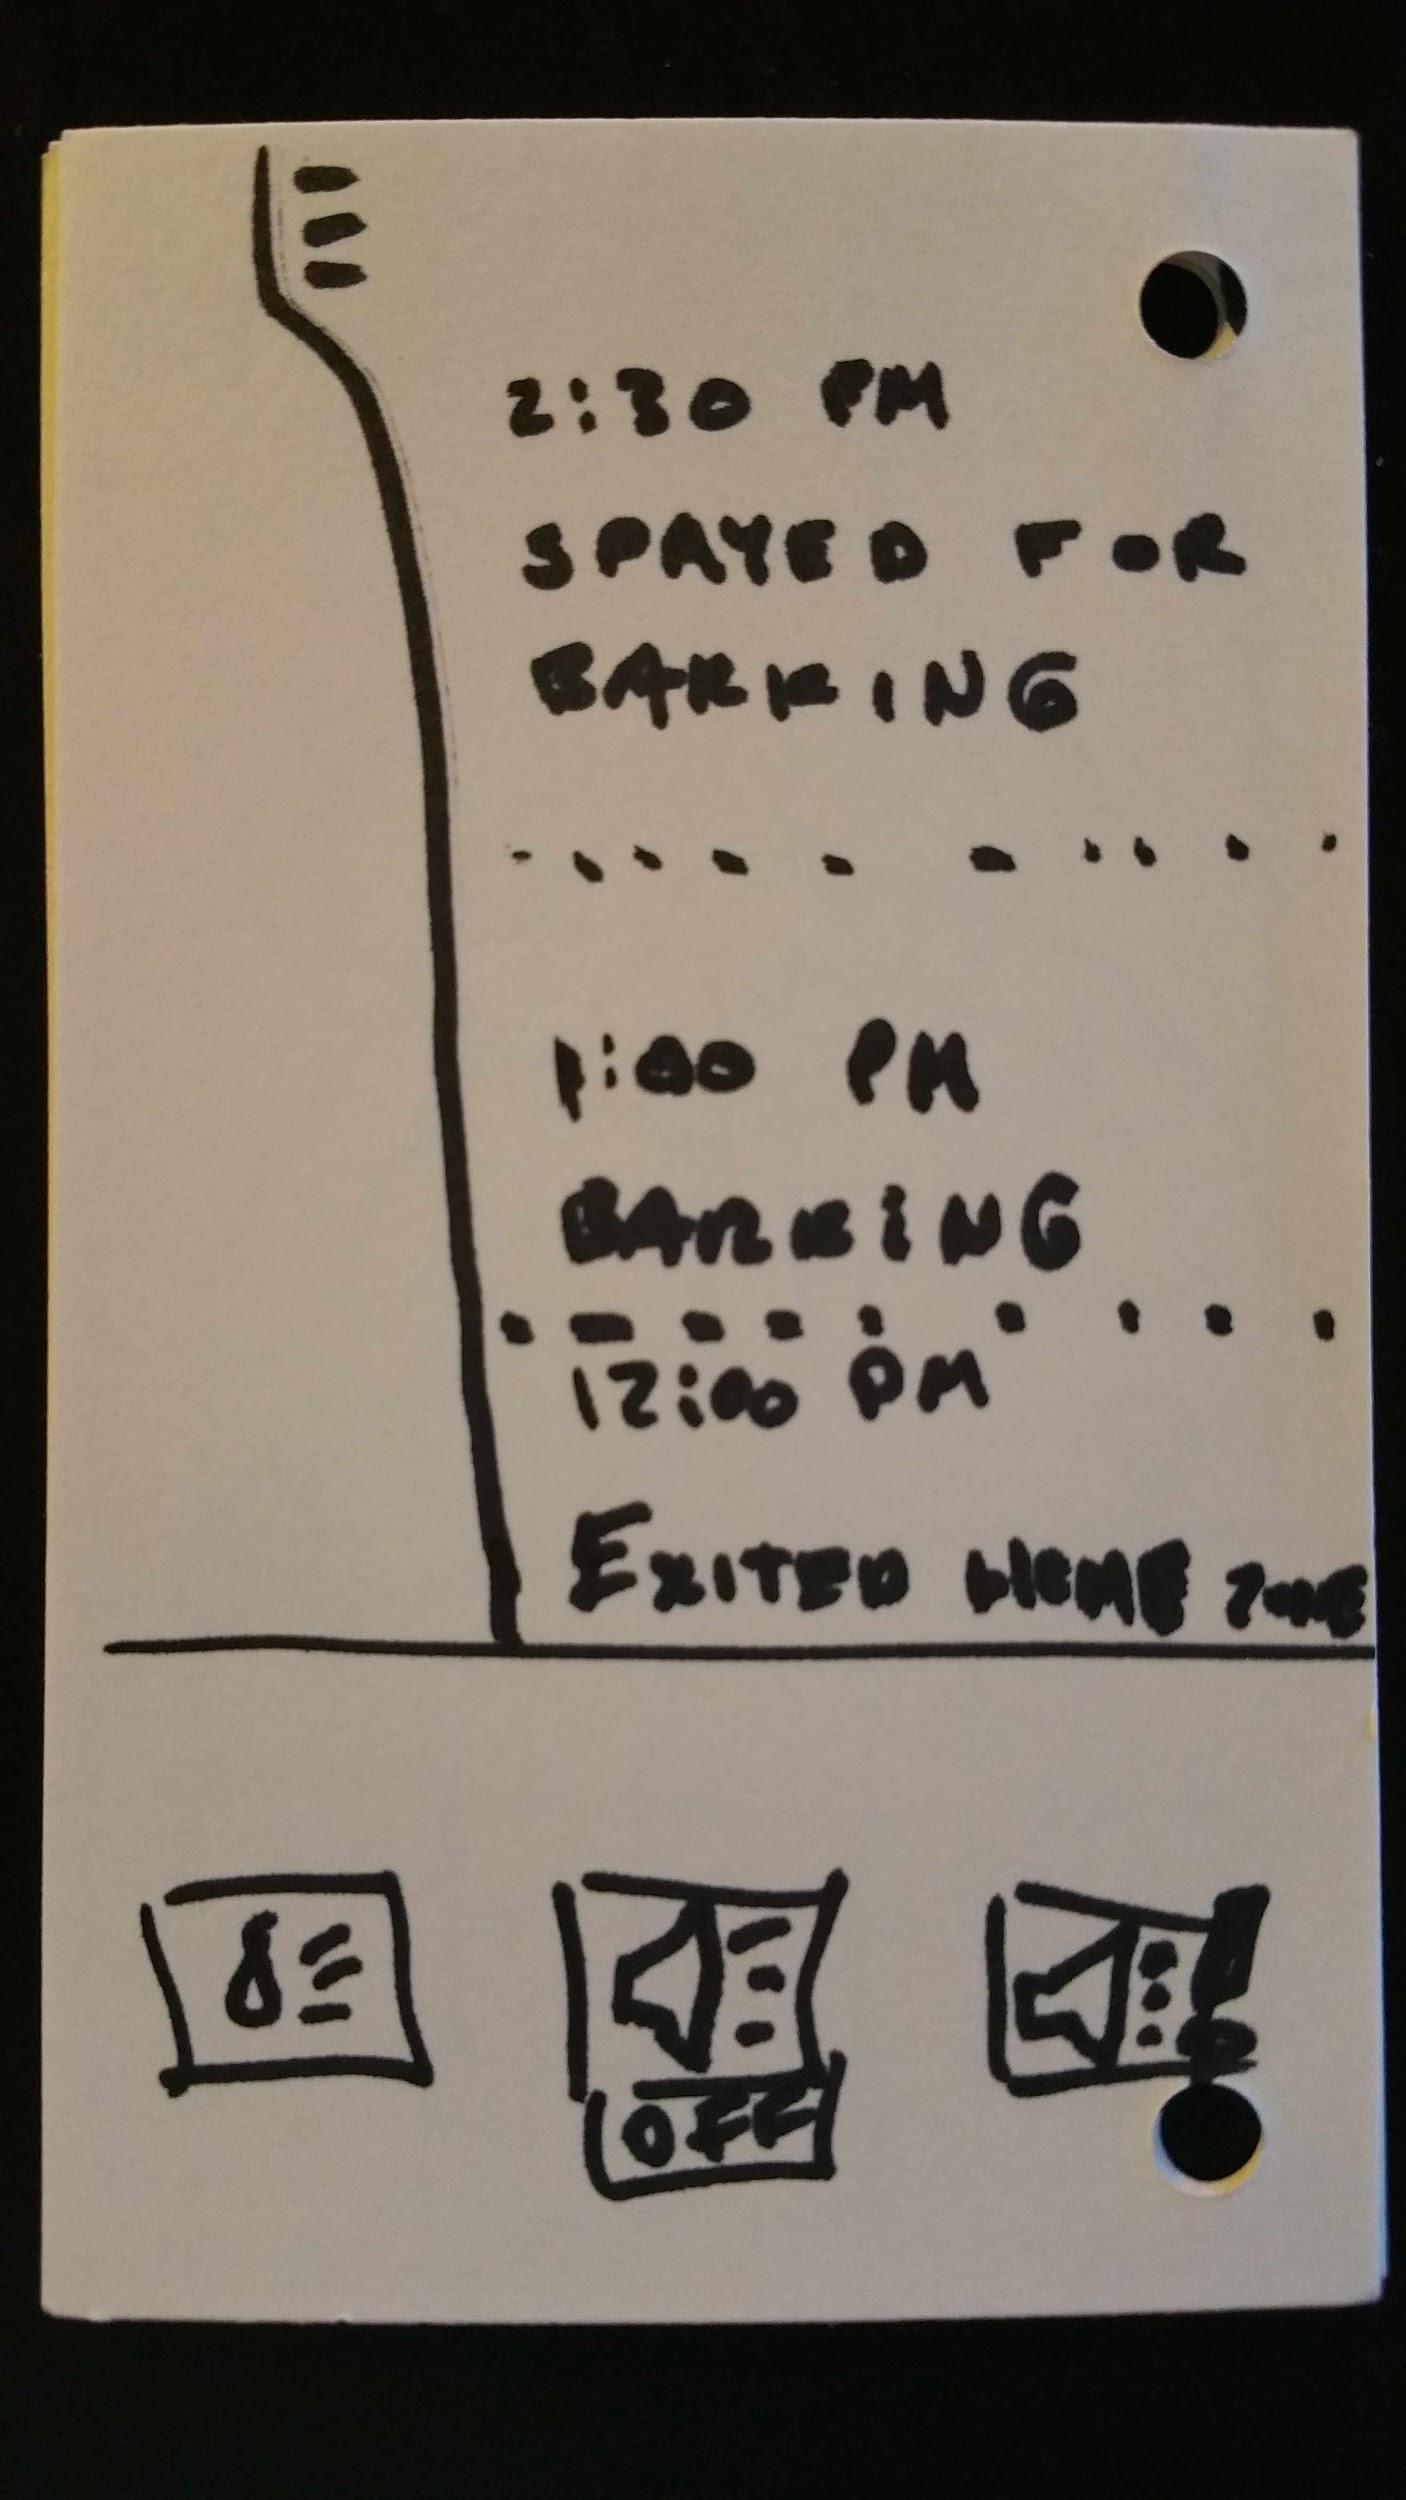 2:30 PM
SPAYED FOR
BARKING
1:00 PM
BARKING
12:00 PM
EXITED HOME ZONE
OFF